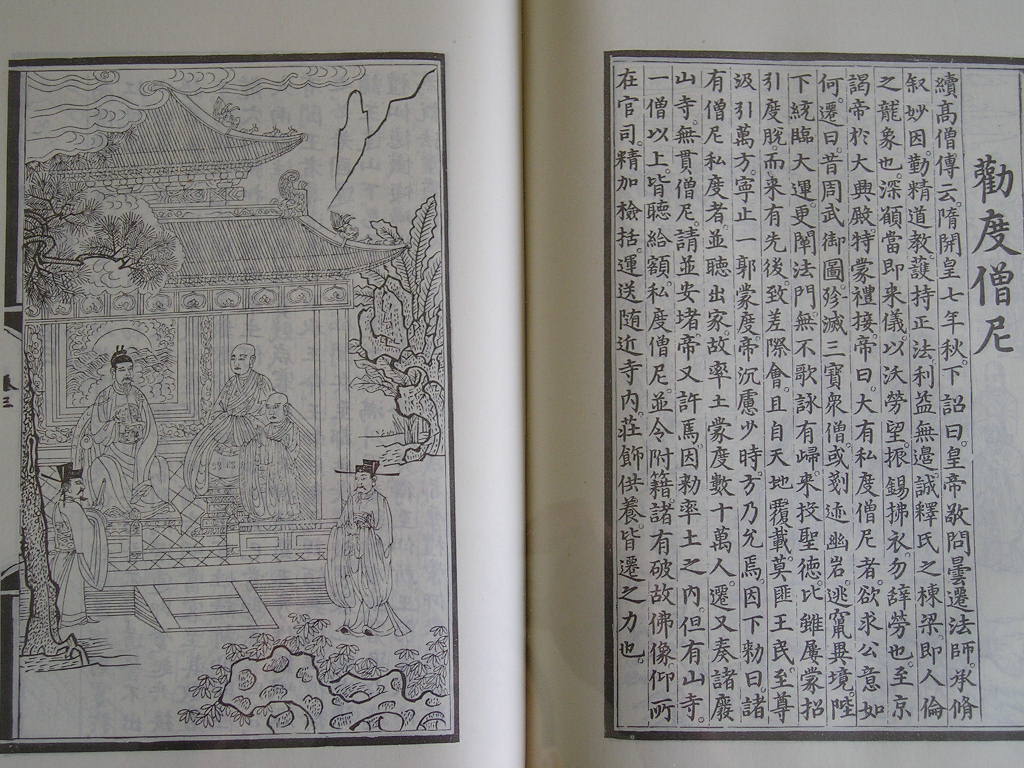 勸度僧尼
續高僧傳云。隋開皇七年秋。下詔曰。皇帝敬問曇遷法師。承脩
叙妙因。勤精道教。護持正法。利益無邊。誠釋氏之棟梁。即人倫
之龍象也。深願當即來儀。以沃勞望。振錫拂衣。勿辭勞也。至京
謁帝於大興殿。特蒙禮接。帝曰。大有私度僧尼者。欲求公意如
何。遷曰。昔周武御圖。殄滅三寶。衆僧或剗迹幽岩。逃竄異境。陛
下統臨大運。更闡法門。無不歌詠有歸。來投聖德。比雖屢蒙招
引度脫。而來有先後。致差際會。且自天地覆載。莫匪王民。至尊
汲引萬方。寧止一郭蒙度。帝沉慮少時。方乃允焉。因下勑曰。諸
有僧尼私度者。並聽出家。故率土蒙度數十萬人。遷又奏諸廢
山寺。無貫僧尼。請並安堵。帝又許焉。因勑率土之內。但有山寺。
一僧以上。皆聽給額。私度僧尼。並令附籍。諸有破故佛像。仰所
在官司。精加檢括。運送随近寺內。莊飾供養。皆遷之力也。
三